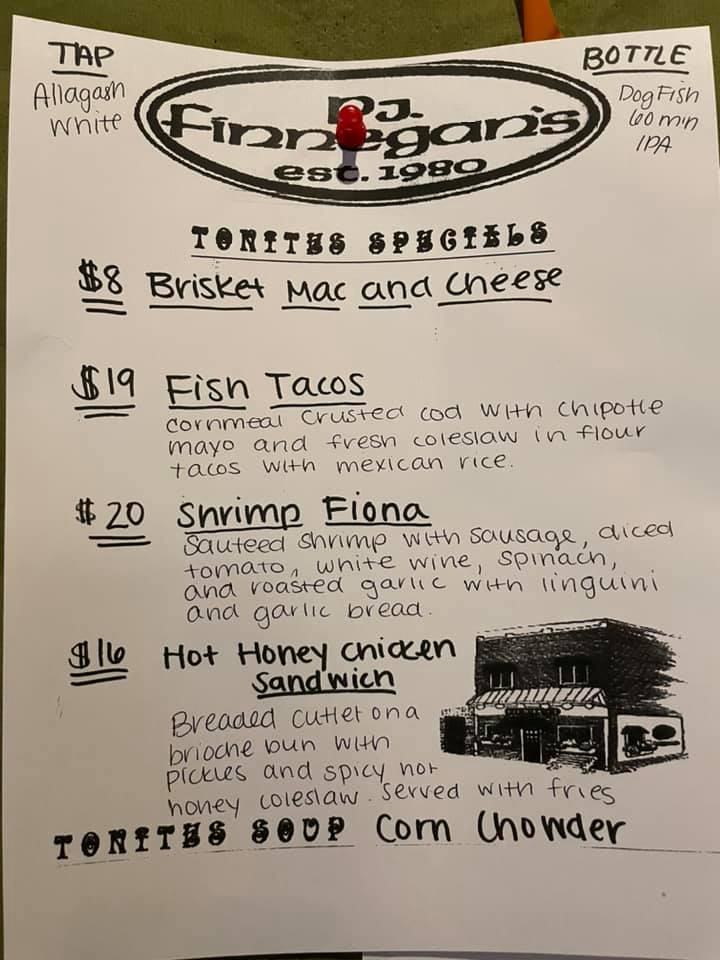 TAP
Allagash
White
BOTTLE
DogFish
60 min
IPA
P.J.
Finnegan's
est. 1980
TONITES SPECIALS
$8 Brisket Mac and Cheese
$19 Fish Tacos
cornmeal crusted cod with chipotle
mayo and fresh coleslaw in flour
tacos with mexican rice.
$20 Shrimp Fiona
Sauteed shrimp with sausage, diced
tomato, white wine, spinach,
and roasted garlic with linguini
and garlic bread.
$16 Hot Honey Chicken
Sandwich
Breaded cutlet on a
brioche bun with
pickles and spicy hot
honey coleslaw. Served with fries
TONITES SOUP Corn Chowder